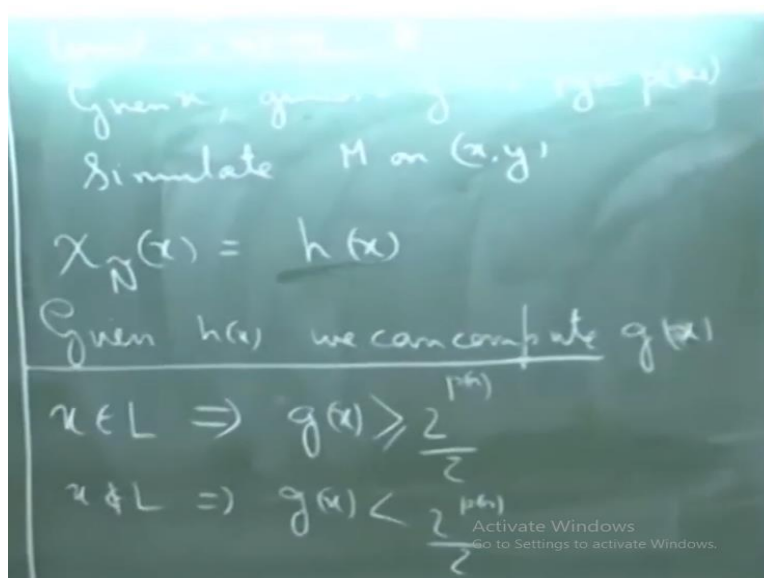 Given x, y p(n)
Simulate M on (x,y)
χ_Ñ(x) = h(x)
Given h(x) we can compute g(x)
x ∈ L ⇒ g(x) ≥ 2^{p(n)}/2
x ∉ L ⇒ g(x) < 2^{p(n)}/2
Activate Windows
Go to Settings to activate Windows.